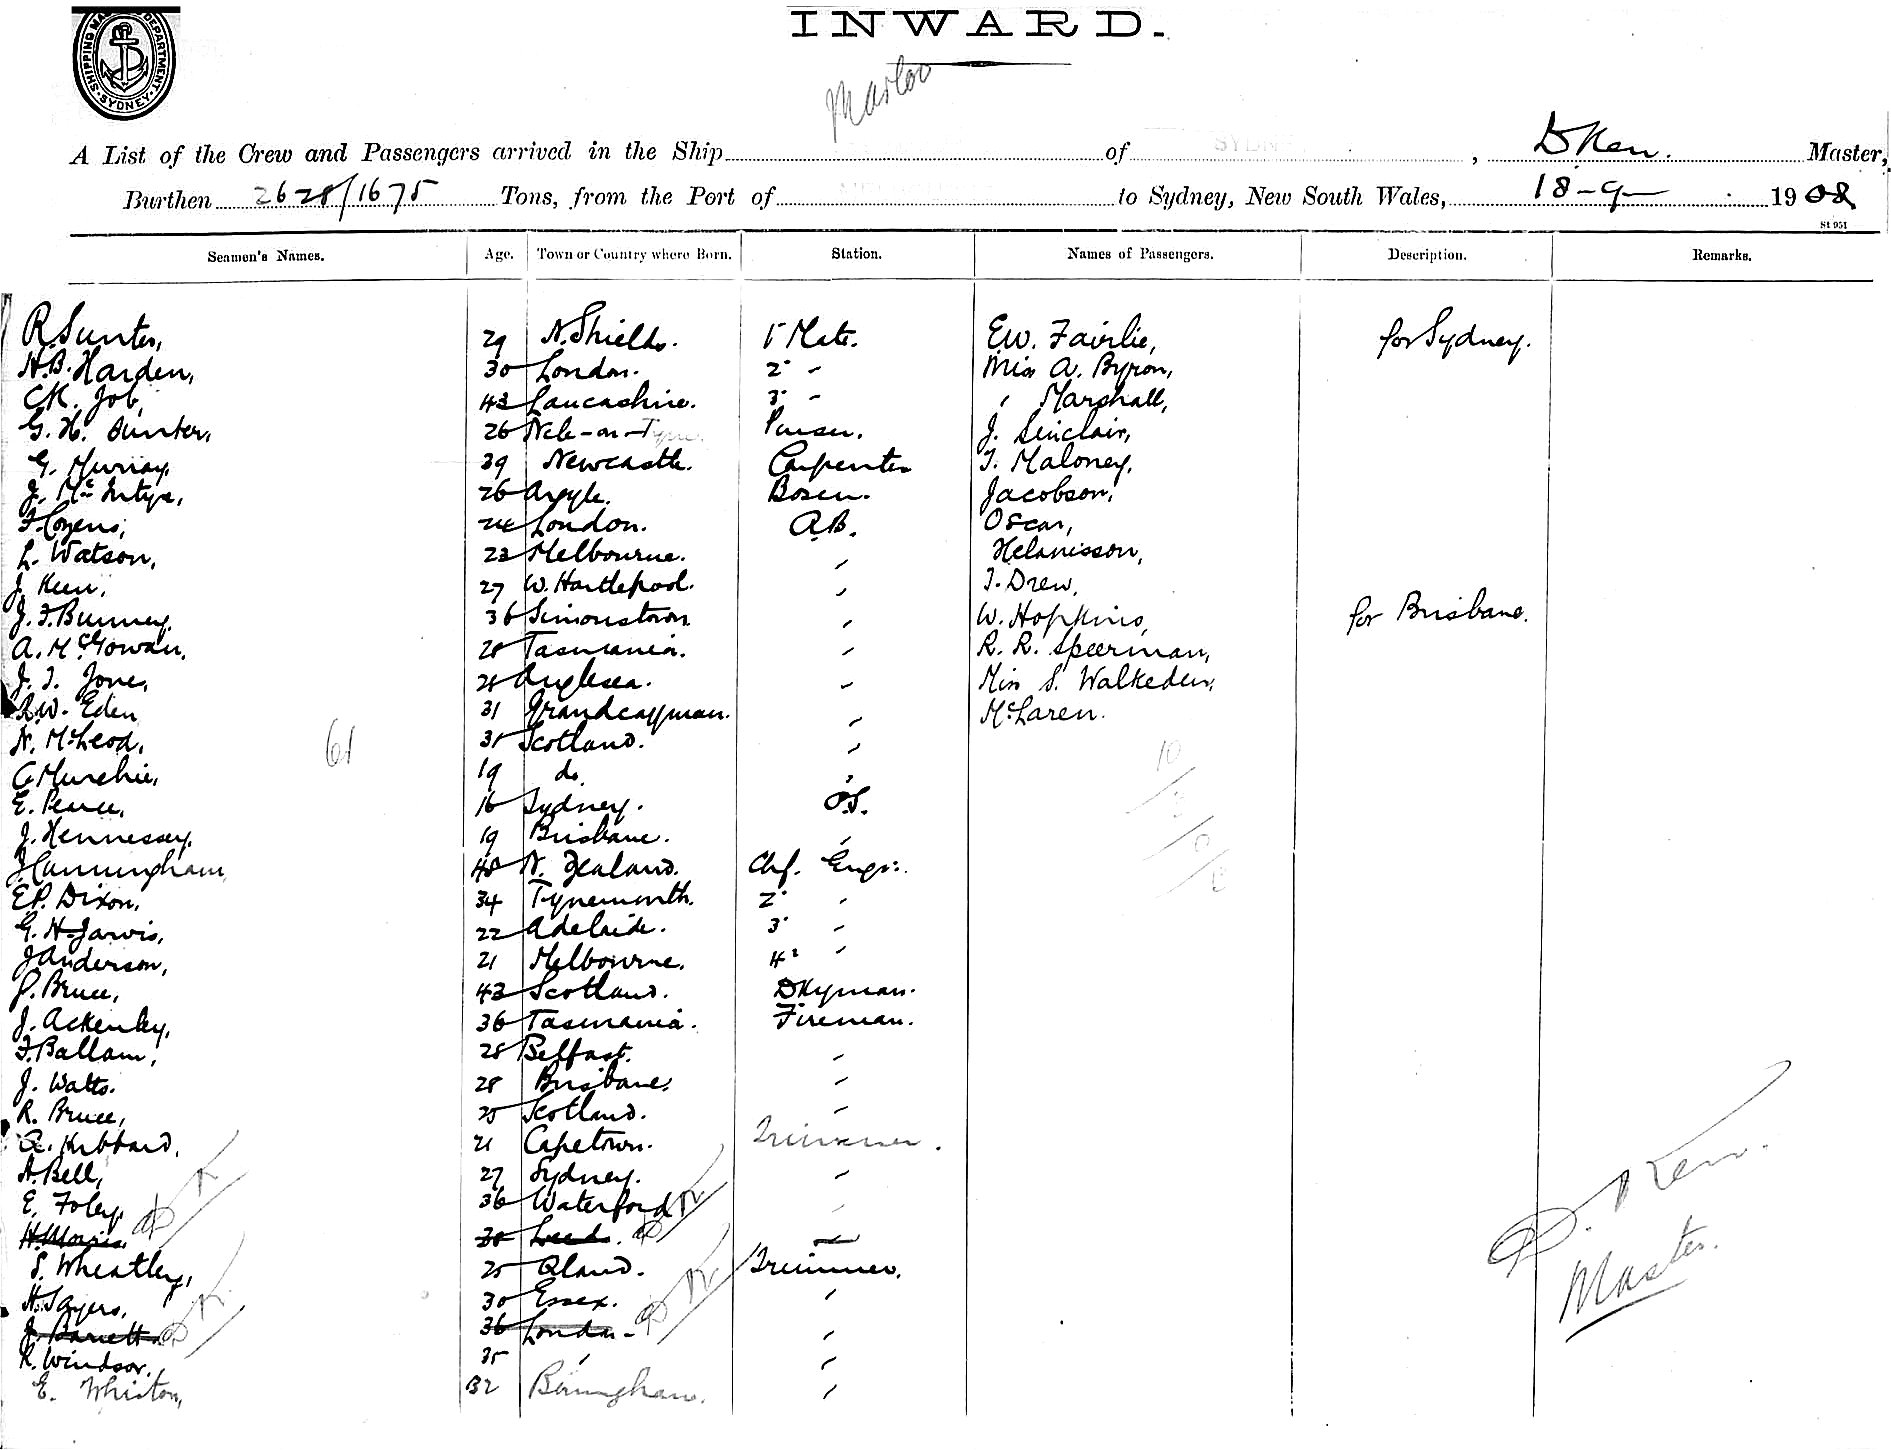 SHIPPING MA DEPARTMENT. SYDNEY
INWARD.
Marloo
A List of the Crew and Passengers arrived in the Ship of SYDN , D Ken. Master,
Burthen 2628/1675 Tons, from the Port of to Sydney, New South Wales, 18-9- 1908
St 951
Seamen's Names. Age. Town or Country where Born. Station. Names of Passengers. Description. Remarks.
R. Sunter, 29 N. Shields. 1st Mate. E.W. Fairlie, for Sydney.
H.B. Harden, 30 London. 2" - Miss A. Byron,
C.K. Job, 43 Lancashire. 3" - " Marshall,
G. H. Sunter, 26 Ncle-on-Tyne. Purser. J. Sinclair,
G. Murray, 39 Newcastle. Carpenter T. Maloney,
J. McIntyre, 26 Argyle. Bosun. Jacobson,
F. Cozens, 24 London. A.B. Oscar,
L. Watson, 23 Melbourne. " Helanisson,
J. Keen, 27 W. Hartlepool. " T. Drew,
J. F. Bunney, 36 Simonstown " W. Hopkins, for Brisbane.
A. McGowan, 28 Tasmania. " R. R. Speerman,
J. T. Jone, 28 Anglesea. " Miss S. Walkeden,
R.W. Eden 31 Grandcayman. " McLaren.
N. McLeod, 61 35 Scotland. "
C. Murchie, 19 do. "
E. Pearce, 16 Sydney. O.S.
J. Hennessey, 19 Brisbane. "
J Cunningham, 48 N. Zealand. Chf. Engr.
E.P. Dixon, 34 Tynemouth. 2" "
G. H. Jarvis, 22 Adelaide. 3" "
J Anderson, 21 Melbourne. 4" "
P. Bruce, 43 Scotland. Dkyman.
J. Ackenley, 36 Tasmania. Fireman.
F. Ballam, 28 Belfast. "
J. Watts. 28 Brisbane. "
R. Bruce, 25 Scotland. "
A. Hibbard, 21 Capetown. Trimmer.
A. Bell, 27 Sydney. "
E. Foley, 36 Waterford "
H. Morris, 30 Leeds. "
S. Wheatley, 25 Qland. Trimmer.
H. Sayers, 30 Essex. "
J. Barrett 36 London - "
R. Windsor, 35 " "
E. Whiston, 32 Birmingham. "
D. Ken.
Master.